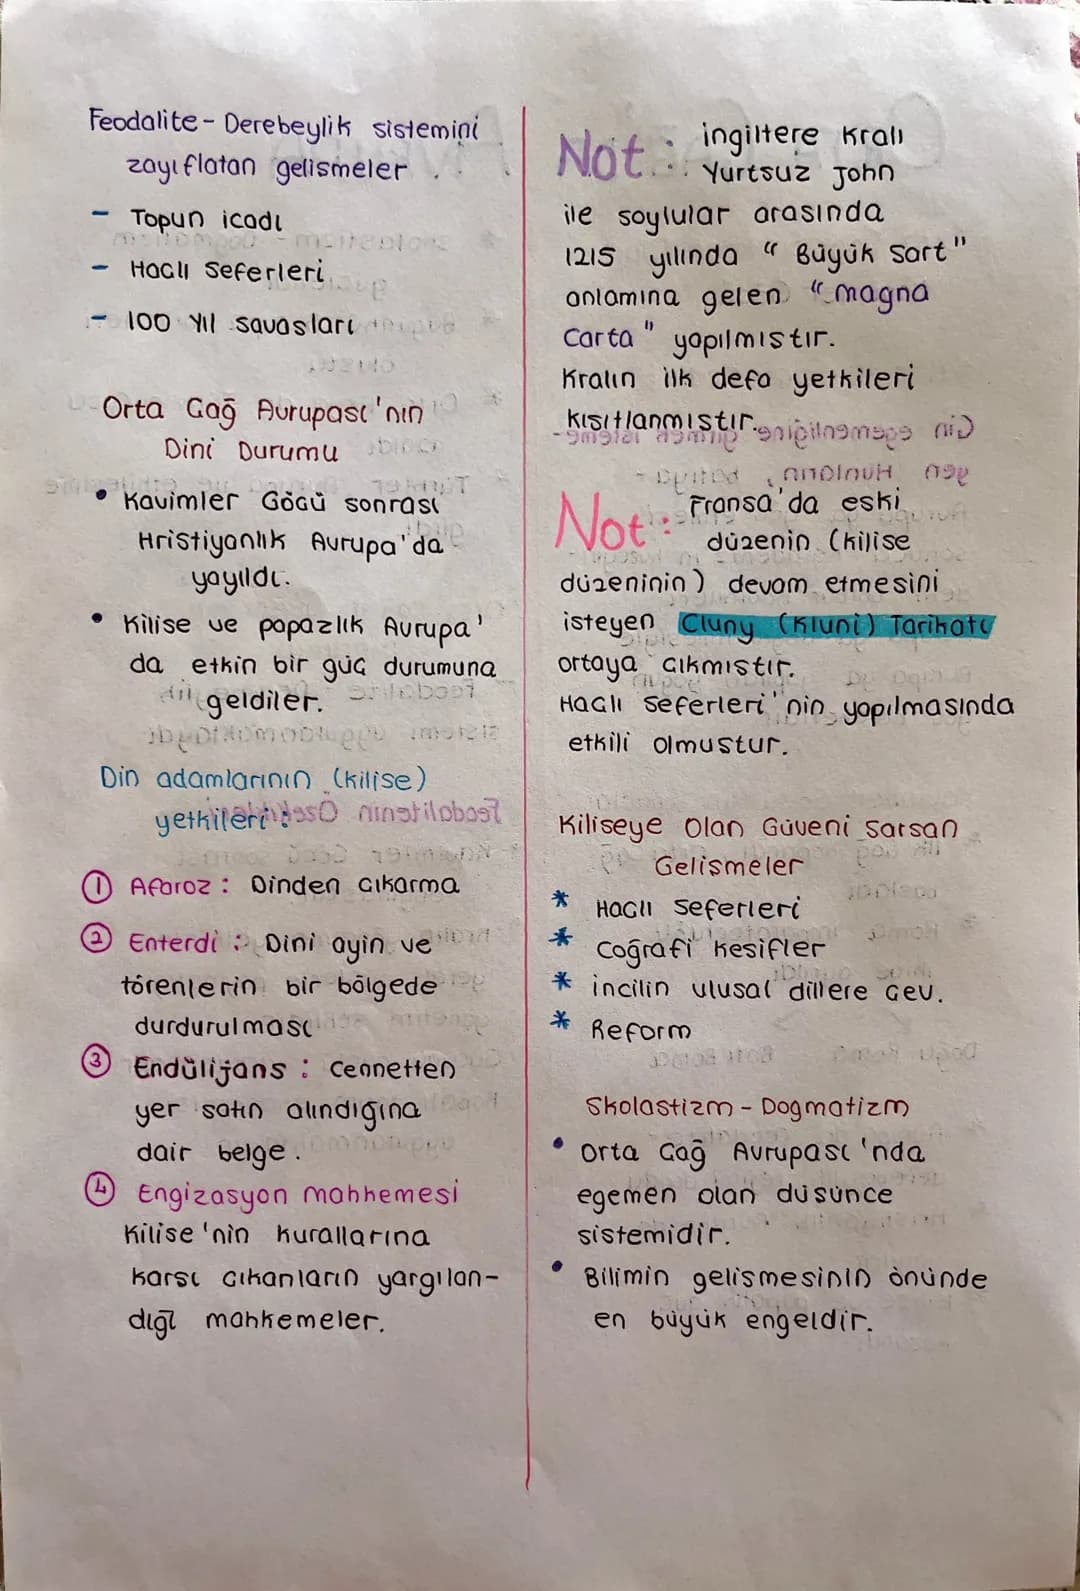 Feodalite - Derebeylik sistemini
zayıflatan gelismeler
- Topun icadı
- Haclı Seferleri
- 100 Yıl savasları
Orta Cağ Avrupası'nın
Dini Durumu
• Kavimler Göcü sonrası
Hristiyanlık Avrupa'da
yayıldı.
• Kilise ve papazlık Avrupa'
da etkin bir güc durumuna
geldiler.
Din adamlarının (kilise)
yetkileri :
1 Aforoz : Dinden cıkarma
2 Enterdi : Dini ayin ve
törenlerin bir bölgede
durdurulması
3 Endülijans : Cennetten
yer satın alındığına
dair belge.
4 Engizasyon mahkemesi
Kilise'nin kurallarına
karsı cıkanların yargılan-
dığı mahkemeler.
Not : ingiltere Kralı
Yurtsuz John
ile soylular arasında
1215 yılında "Büyük Sart"
anlamına gelen "magna
Carta" yapılmıstır.
Kralın ilk defa yetkileri
kısıtlanmıstır.
Not : Fransa'da eski
düzenin (kilise
düzeninin) devam etmesini
isteyen Cluny (Kluni) Tarikatı
ortaya cıkmıstır.
Haclı Seferleri'nin yapılmasında
etkili olmustur.
Kiliseye Olan Güveni Sarsan
Gelismeler
* Haclı Seferleri
* Coğrafi kesifler
* incilin ulusal dillere cev.
* Reform
Skolastizm - Dogmatizm
• Orta Cağ Avrupası'nda
egemen olan düsünce
sistemidir.
• Bilimin gelismesinin önünde
en büyük engeldir.